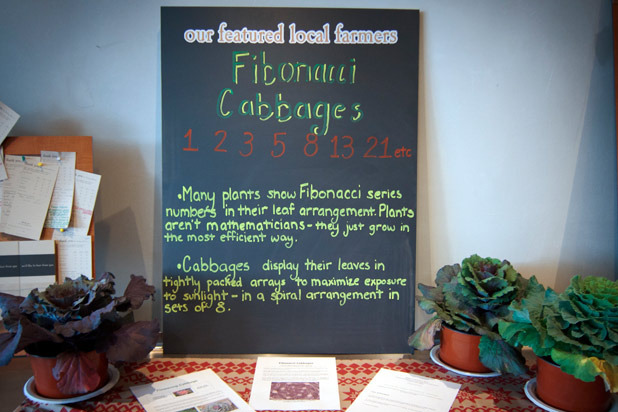 our featured local farmers
Fibonacci
Cabbages
1 2 3 5 8 13 21 etc
•Many plants show Fibonacci series
numbers in their leaf arrangement. Plants
aren't mathematicians - they just grow in
the most efficient way.
•Cabbages display their leaves in
tightly packed arrays to maximize exposure
to sunlight - in a spiral arrangement in
sets of 8.